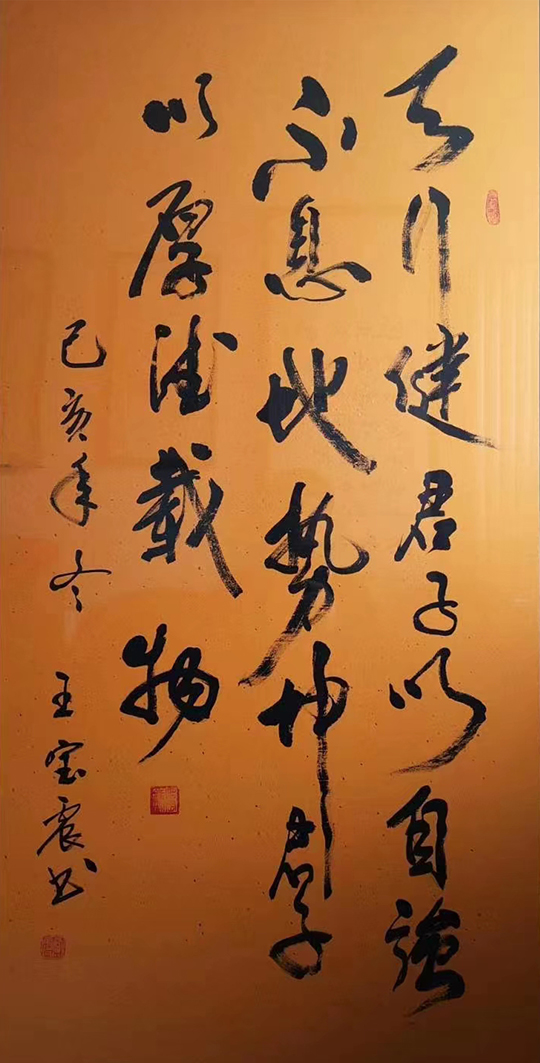 天行健君子以自強
不息地势坤君子
以厚德載物
己亥年冬 王宝震书